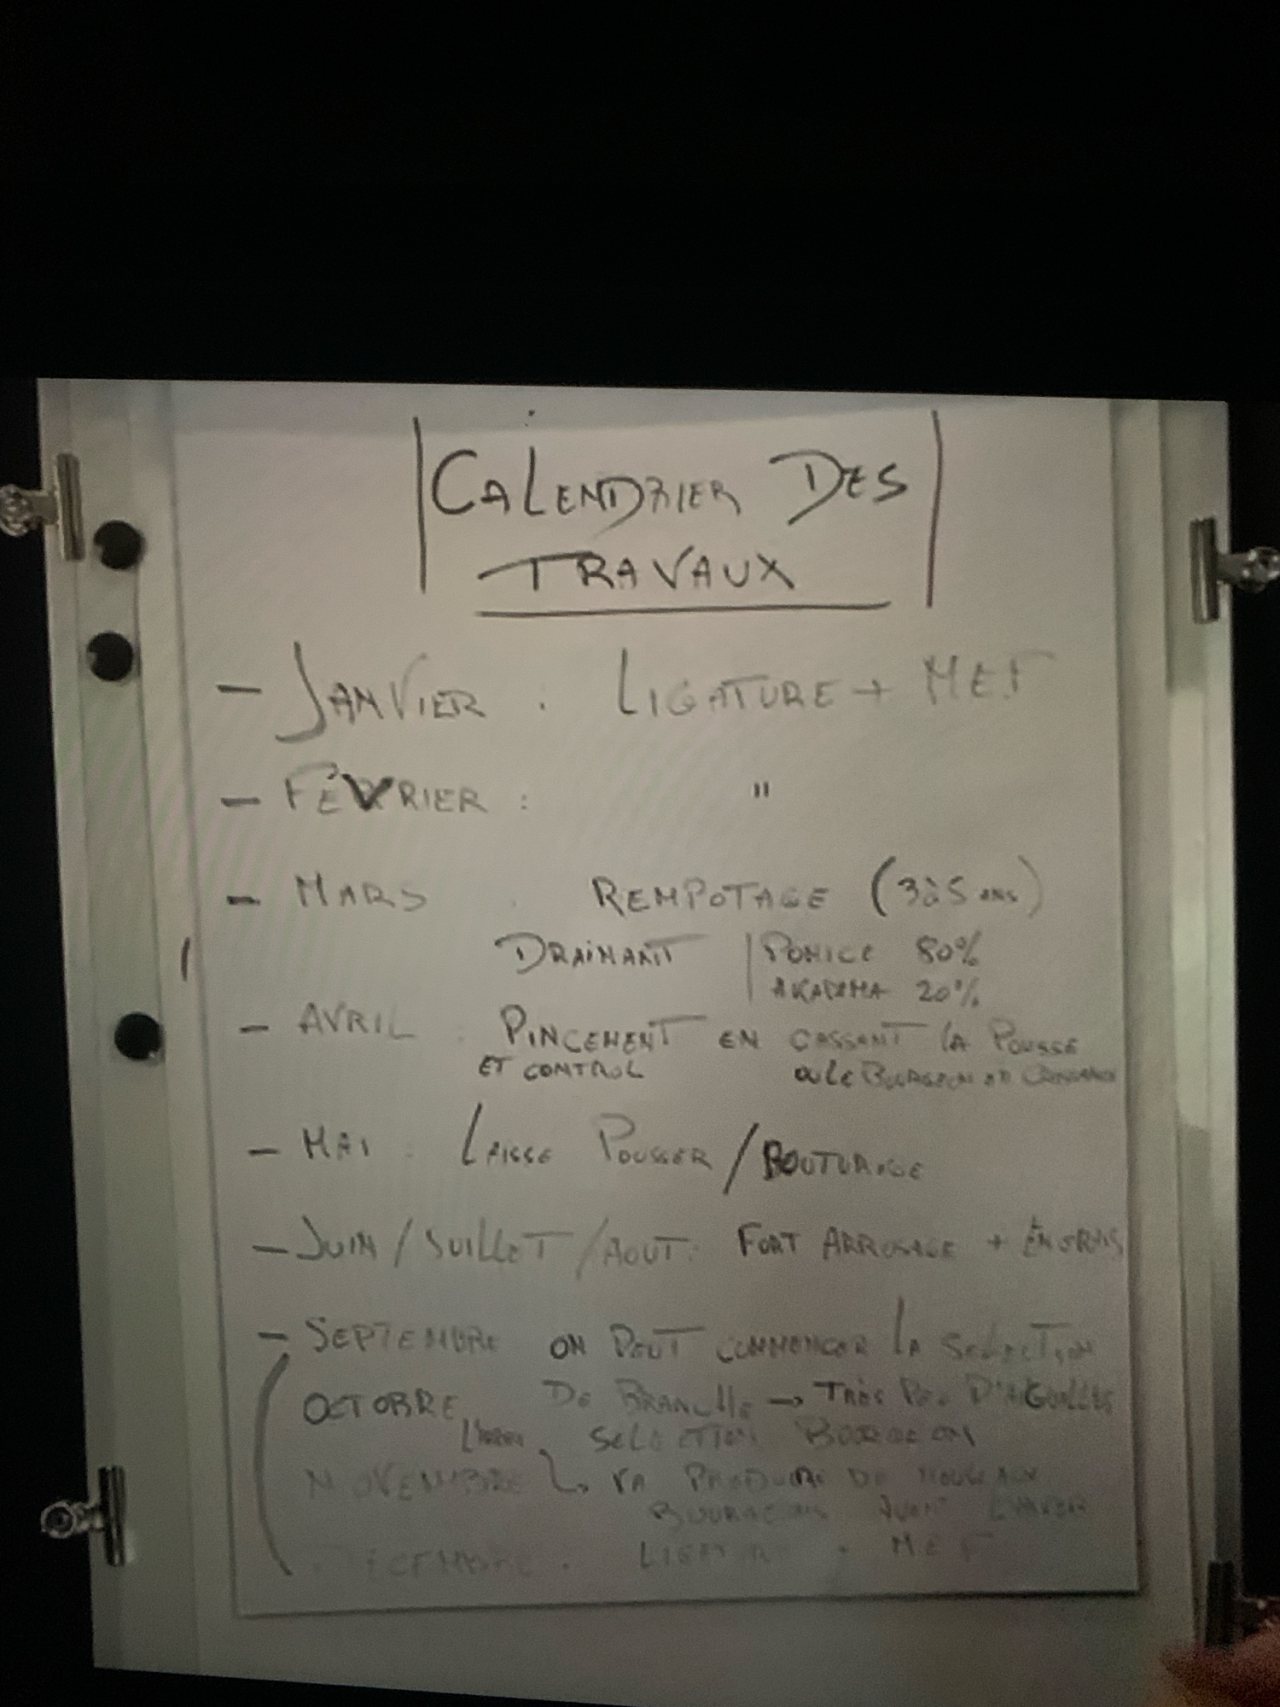 CALENDRIER DES
TRAVAUX
- JANVIER : LIGATURE + MEF
- FÉVRIER : "
- MARS : REMPOTAGE (3 à 5 ans)
DRAINANT | PONICE 80%
AKADAMA 20%
- AVRIL : PINCEMENT EN CASSANT LA POUSSE
ET CONTROL OU LE BOURGEON
- MAI : LAISSE POUSSER / BOUTURAGE
- JUIN / JUILLET / AOUT : FORT ARROSAGE + ENGRAIS
- SEPTEMBRE ON PEUT COMMENCER LA SELECTION
OCTOBRE DE BRANCHE → TRÈS PEU D'AIGUILLES
SELECTION BOURGEON
NOVEMBRE ↳ VA PRODUIRE DE NOUVEAUX
BOURGEONS AVANT L'HIVER
DECEMBRE : LIGATURE + MEF